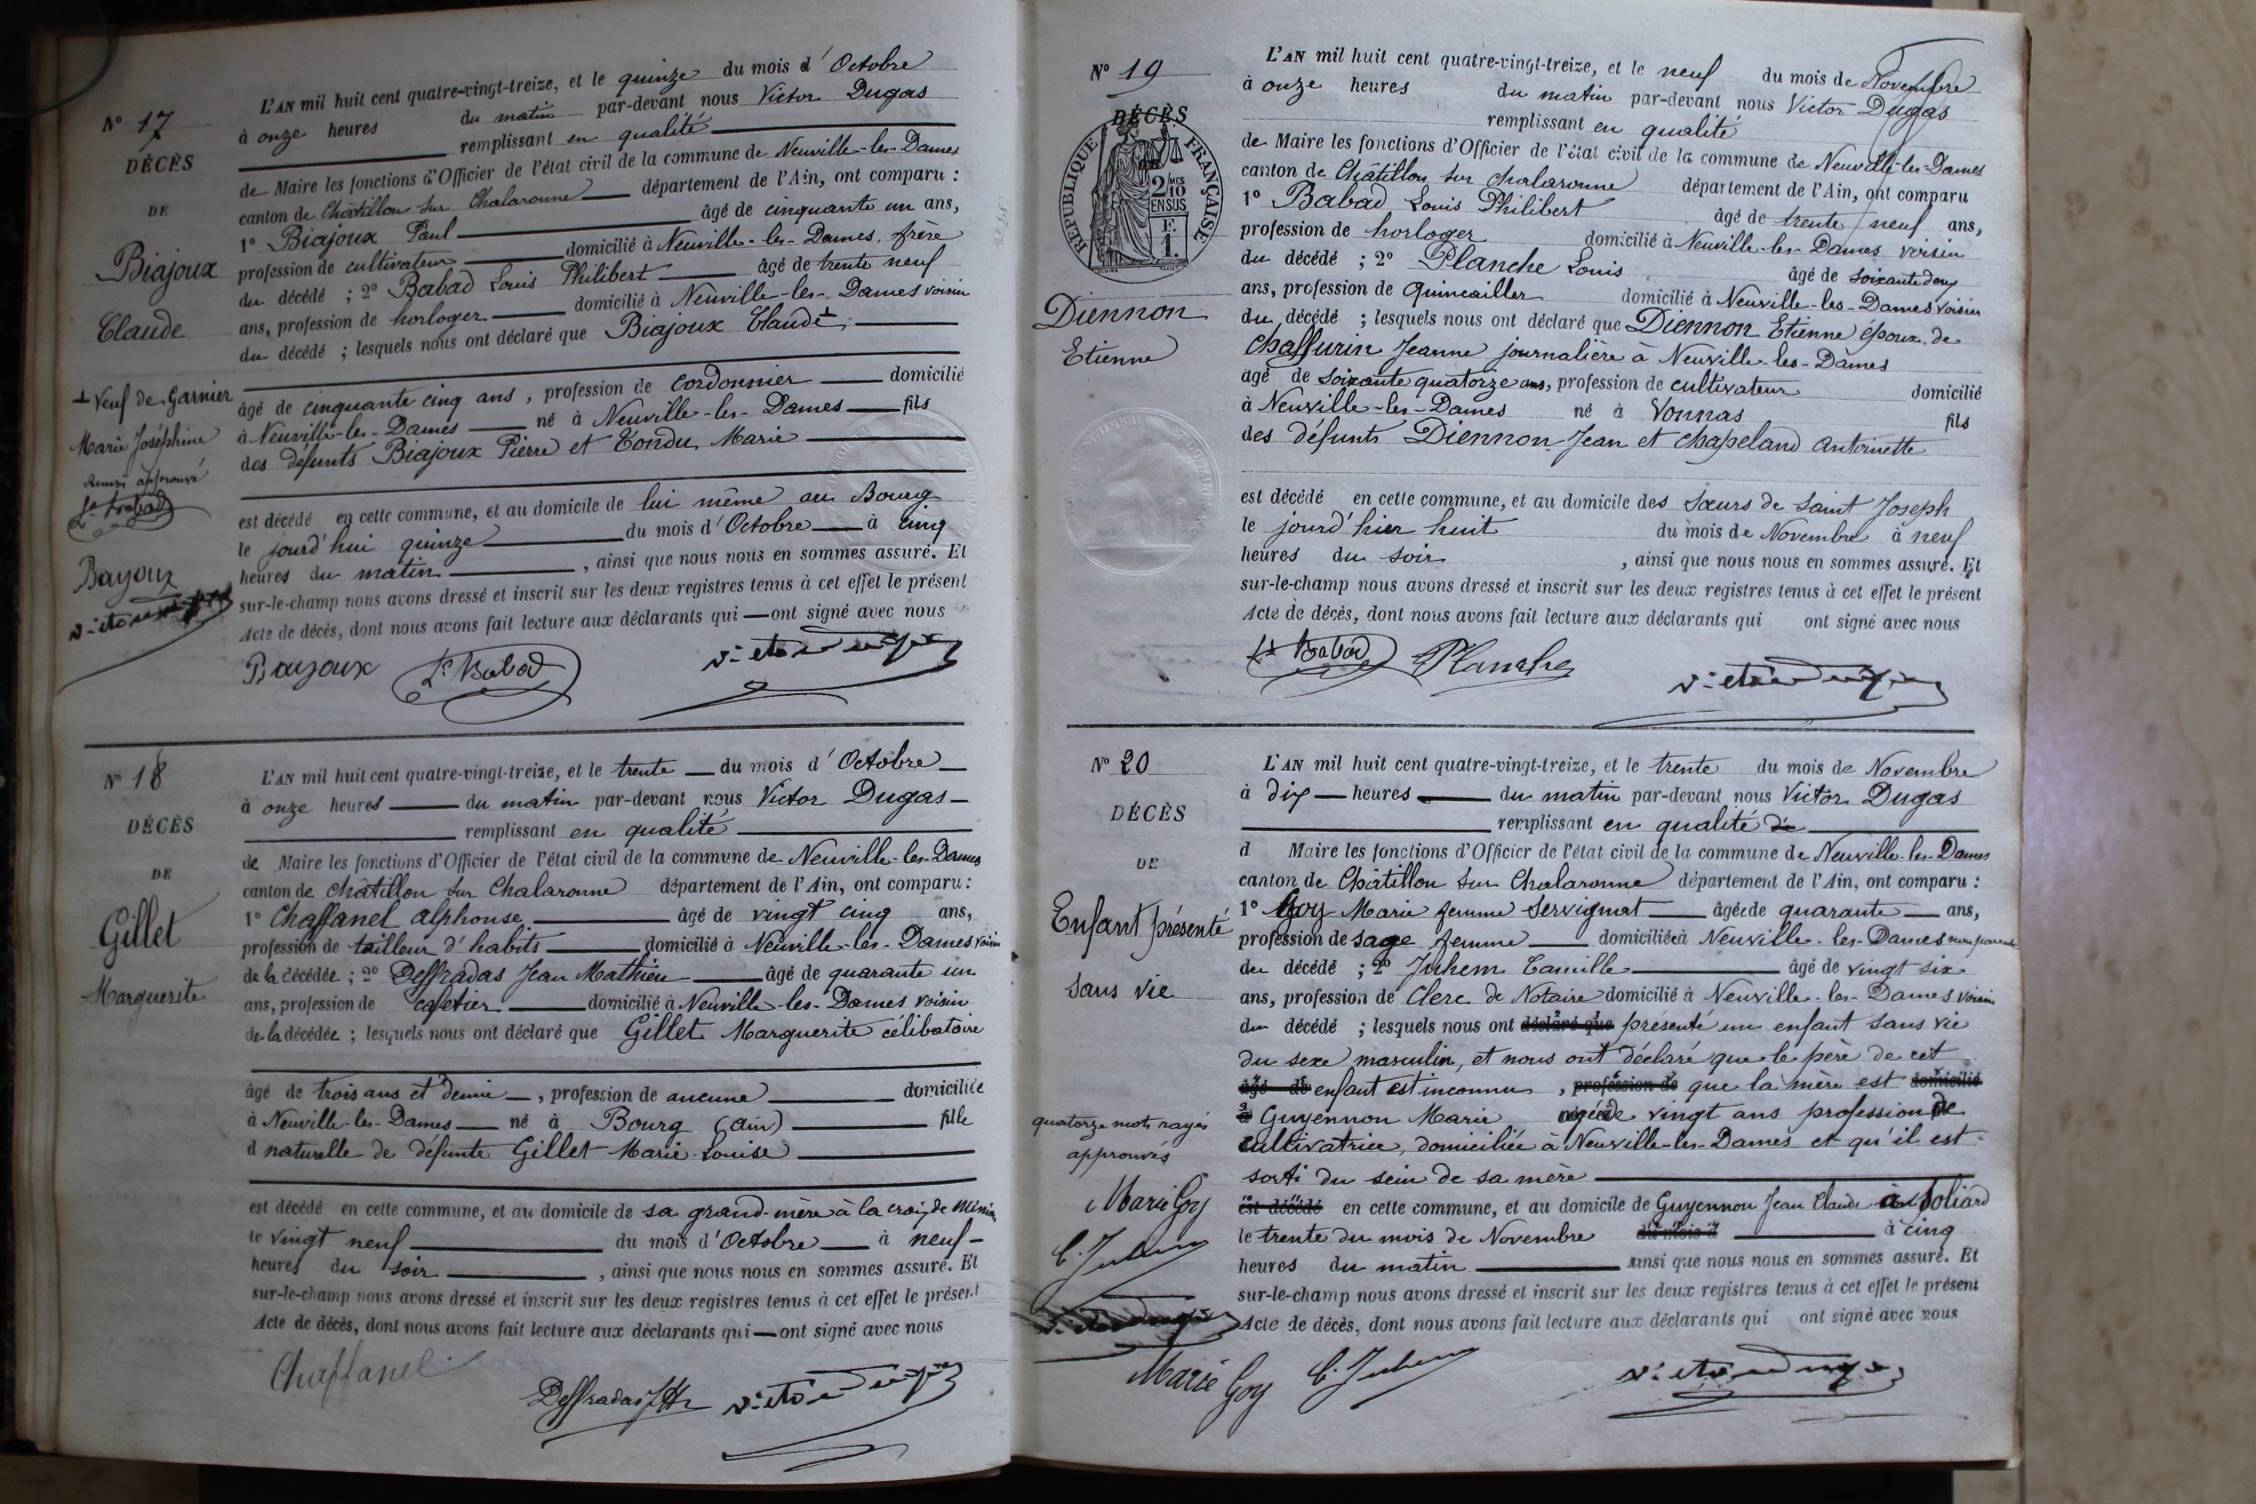 N° 17
DÉCÈS
DE
Biajoux
Claude
⊥ Veuf de Garnier
Marie Joséphine
Renvoi approuvé
Ls Babad
Bajoux
L'AN mil huit cent quatre-vingt-treize, et le quinze du mois d'Octobre
à onze heures du matin par-devant nous Victor Dugas
remplissant en qualité
de Maire les fonctions d'Officier de l'état civil de la commune de Neuville-les-Dames
canton de Châtillon sur Chalaronne département de l'Ain, ont comparu :
1° Biajoux Paul âgé de cinquante un ans,
profession de cultivateur domicilié à Neuville-les-Dames, frère
du décédé ; 2° Babad Louis Philibert âgé de trente neuf
ans, profession de horloger domicilié à Neuville-les-Dames voisin
du décédé ; lesquels nous ont déclaré que Biajoux Claude ⊥
âgé de cinquante cinq ans, profession de cordonnier domicilié
à Neuville-les-Dames né à Neuville-les-Dames fils
des défunts Biajoux Pierre et Tondu Marie
est décédé en cette commune, et au domicile de lui même au Bourg
le jourd'hui quinze du mois d'Octobre à cinq
heures du matin, ainsi que nous nous en sommes assuré. Et
sur-le-champ nous avons dressé et inscrit sur les deux registres tenus à cet effet le présent
Acte de décès, dont nous avons fait lecture aux déclarants qui ont signé avec nous
Bajoux Ls Babad Victor Dugas
N° 18
DÉCÈS
DE
Gillet
Marguerite
L'AN mil huit cent quatre-vingt-treize, et le trente du mois d'Octobre
à onze heures du matin par-devant nous Victor Dugas
remplissant en qualité
de Maire les fonctions d'Officier de l'état civil de la commune de Neuville-les-Dames
canton de Châtillon sur Chalaronne département de l'Ain, ont comparu :
1° Chaffanel Alphonse âgé de vingt cinq ans,
profession de tailleur d'habits domicilié à Neuville-les-Dames voisin
de la décédée ; 2° Deffradas Jean Mathieu âgé de quarante un
ans, profession de cafetier domicilié à Neuville-les-Dames voisin
de la décédée ; lesquels nous ont déclaré que Gillet Marguerite célibataire
âgé de trois ans et demie, profession de aucune domiciliée
à Neuville-les-Dames né à Bourg (Ain) fille
d naturelle de défunte Gillet Marie Louise
est décédé en cette commune, et au domicile de sa grand-mère à la croix de
le vingt neuf du mois d'Octobre à neuf
heures du soir, ainsi que nous nous en sommes assuré. Et
sur-le-champ nous avons dressé et inscrit sur les deux registres tenus à cet effet le présent
Acte de décès, dont nous avons fait lecture aux déclarants qui ont signé avec nous
Chaffanel Deffradas Victor Dugas
N° 19
DÉCÈS
RÉPUBLIQUE FRANÇAISE
2 MES
10
EN SUS
F.
1.
Diennon
Etienne
L'AN mil huit cent quatre-vingt-treize, et le neuf du mois de Novembre
à onze heures du matin par-devant nous Victor Dugas
remplissant en qualité
de Maire les fonctions d'Officier de l'état civil de la commune de Neuville-les-Dames
canton de Châtillon sur Chalaronne département de l'Ain, ont comparu
1° Babad Louis Philibert âgé de trente neuf ans,
profession de horloger domicilié à Neuville-les-Dames voisin
du décédé ; 2° Planche Louis âgé de soixante deux
ans, profession de Quincailler domicilié à Neuville-les-Dames voisin
du décédé ; lesquels nous ont déclaré que Diennon Etienne époux de
Chaffurin Jeanne journalière à Neuville les-Dames
âgé de soixante quatorze ans, profession de cultivateur domicilié
à Neuville-les-Dames né à Vonnas fils
des défunts Diennon Jean et Chapeland Antoinette
est décédé en cette commune, et au domicile des Sœurs de Saint Joseph
le jourd'hier huit du mois de Novembre à neuf
heures du soir, ainsi que nous nous en sommes assuré. Et
sur-le-champ nous avons dressé et inscrit sur les deux registres tenus à cet effet le présent
Acte de décès, dont nous avons fait lecture aux déclarants qui ont signé avec nous
Ls Babad Planche Victor Dugas
N° 20
DÉCÈS
DE
Enfant présenté
sans vie
quatorze mots rayés
approuvés
Marie Goy
C. Juhem
L'AN mil huit cent quatre-vingt-treize, et le trente du mois de Novembre
à dix heures du matin par-devant nous Victor Dugas
remplissant en qualité de
d Maire les fonctions d'Officier de l'état civil de la commune de Neuville-les-Dames
canton de Châtillon sur Chalaronne département de l'Ain, ont comparu :
1° Goy Marie femme Servignat âgée de quarante ans,
profession de sage femme domiciliée à Neuville-les-Dames non parente
du décédé ; 2° Juhem Camille âgé de vingt six
ans, profession de Clerc de Notaire domicilié à Neuville-les-Dames voisin
du décédé ; lesquels nous ont déclaré que présenté un enfant sans vie
du sexe masculin, et nous ont déclaré que le père de cet
âgé de enfant est inconnu, profession de que la mère est domicilié
à Guyennon Marie âgée de vingt ans profession de
cultivatrice, domiciliée à Neuville-les-Dames et qu'il est
sorti du sein de sa mère
est décédé en cette commune, et au domicile de Guyennon Jean Claude à Joliard
le trente du mois de Novembre du mois d à cinq
heures du matin ainsi que nous nous en sommes assuré. Et
sur-le-champ nous avons dressé et inscrit sur les deux registres tenus à cet effet le présent
Acte de décès, dont nous avons fait lecture aux déclarants qui ont signé avec nous
Marie Goy C. Juhem Victor Dugas